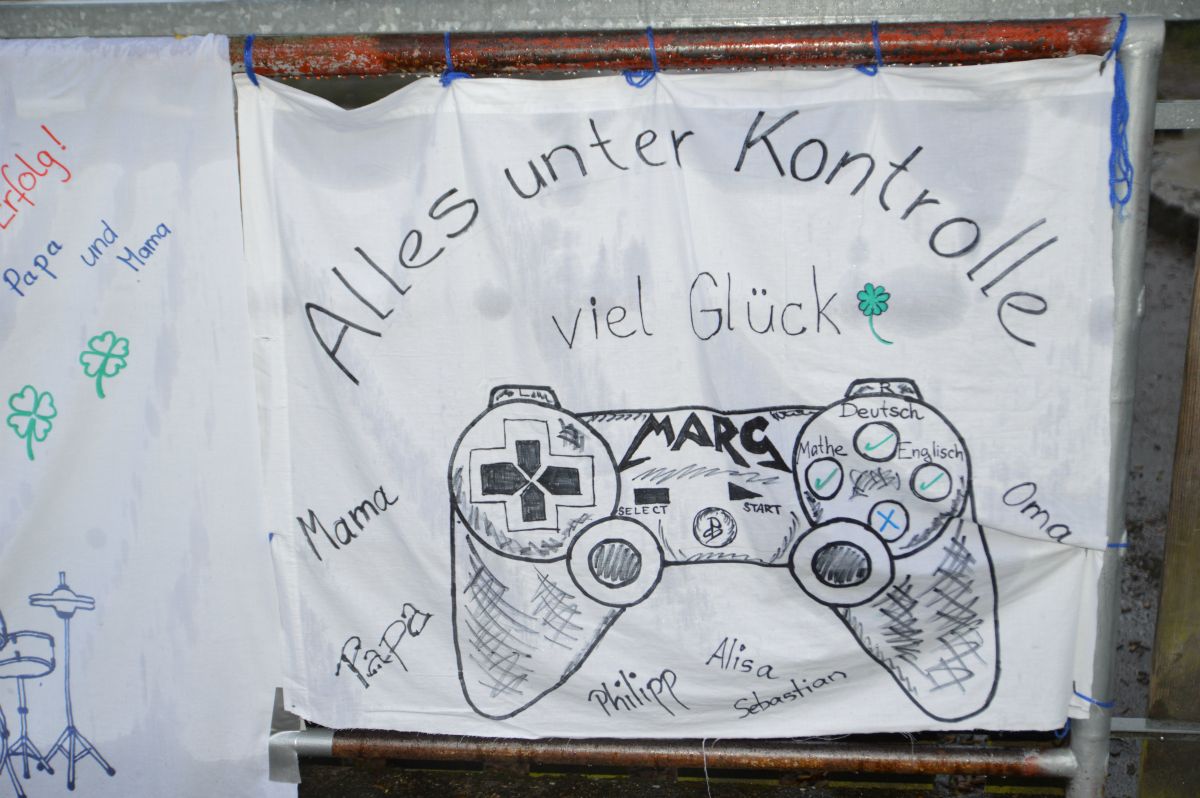 Erfolg!
Papa und Mama
Alles unter Kontrolle
viel Glück
L
R
MARC
Deutsch
Mathe
Englisch
SELECT
START
Mama
Oma
Papa
Philipp
Alisa
Sebastian